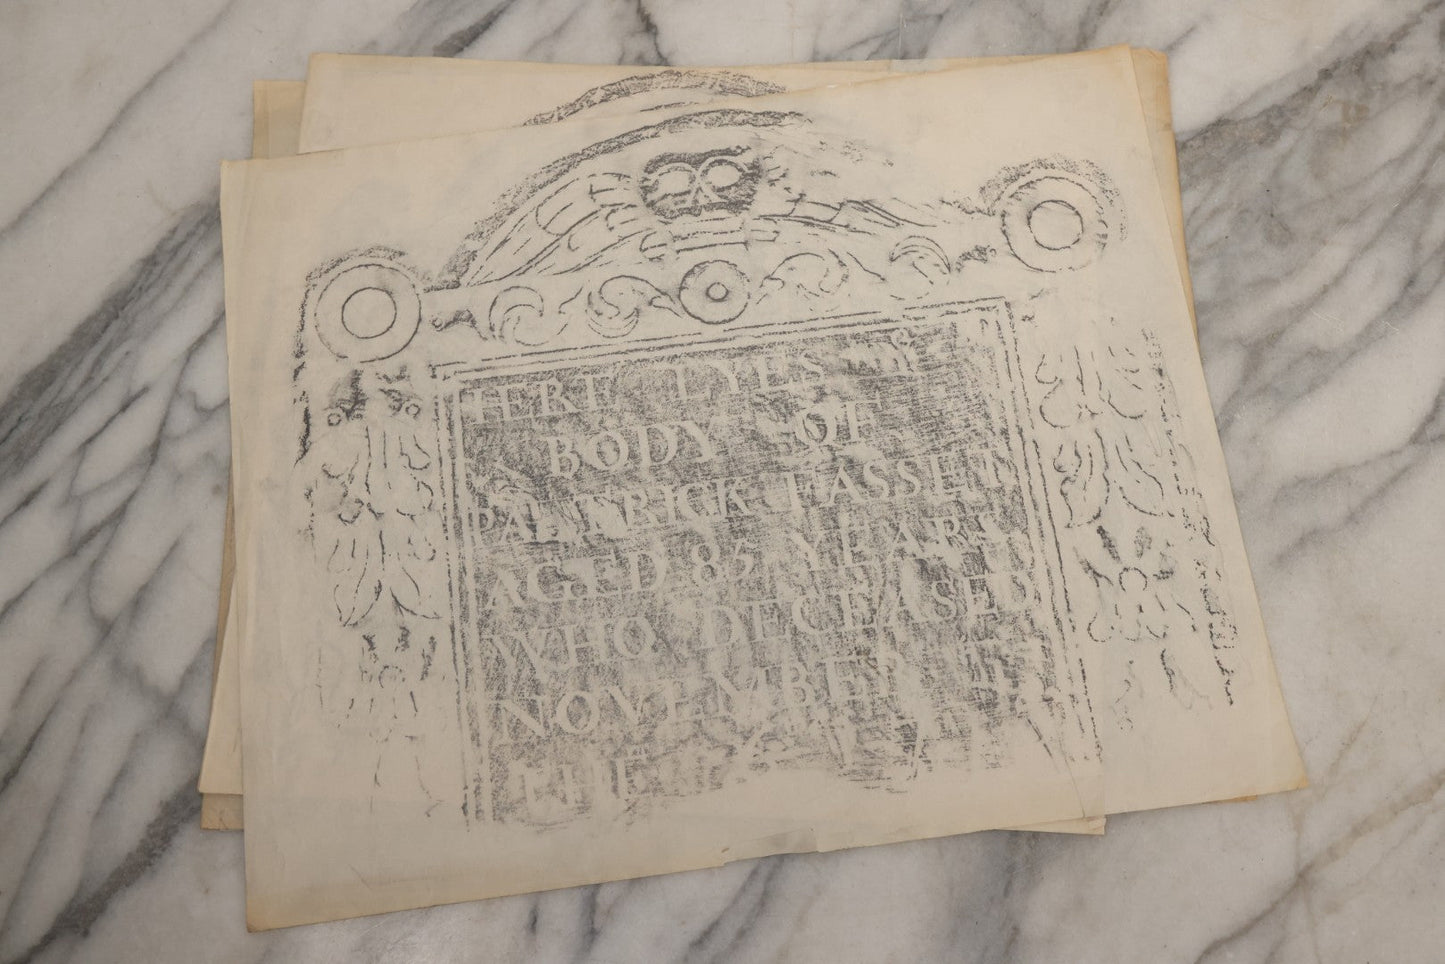 HERE LYES Yᵉ
BODY OF
PARTRICK HASSETT
AGED 85 YEARS
WHO DECEASED
NOVEMBER
THE